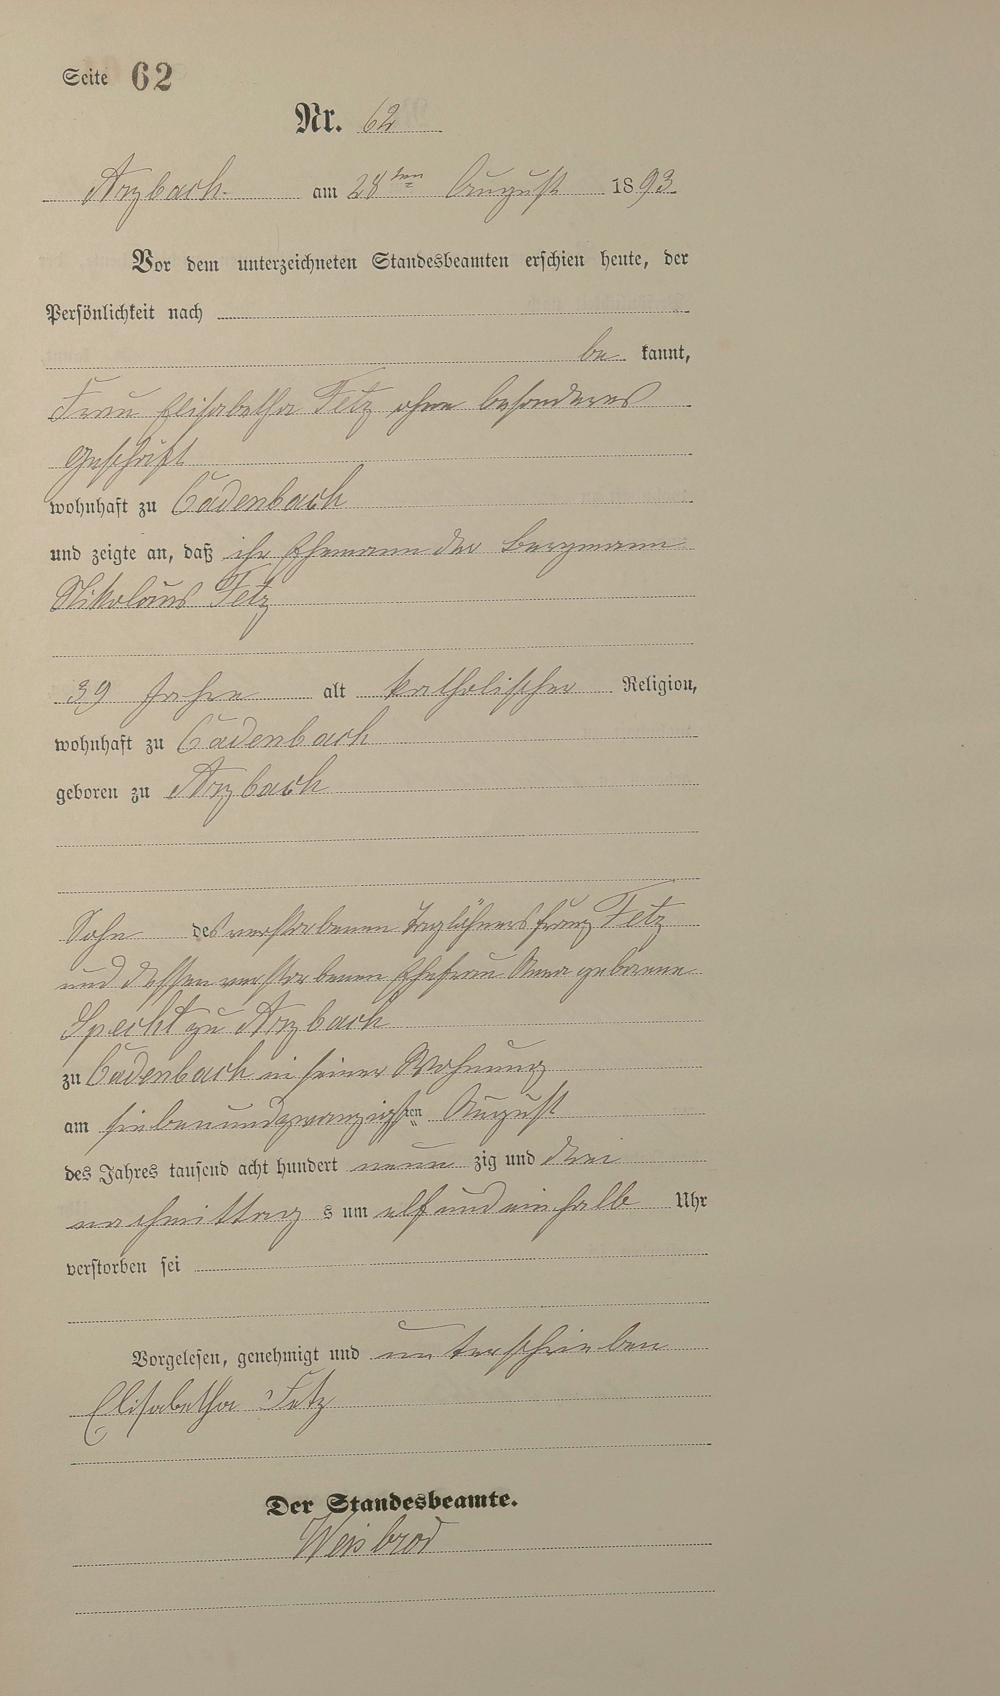 Seite 62
Nr. 62
Arzbach. am 28ten August 1893
Vor dem unterzeichneten Standesbeamten erschien heute, der
Persönlichkeit nach
be kannt,
Frau Elisabetha Fetz ohne besonderes
Geschäft
wohnhaft zu Cadenbach
und zeigte an, daß ihr Ehemann der Bergmann
Nikolaus Fetz
39 Jahre alt katholischer Religion,
wohnhaft zu Cadenbach
geboren zu Arzbach
Sohn des verstorbenen Taglöhners Franz Fetz
und dessen verstorbenen Ehefrau Anna geborene
Specht zu Arzbach
zu Cadenbach in seiner Wohnung
am siebenundzwanzigsten August
des Jahres tausend acht hundert neun zig und drei
nachmittag s um elf und ein halb Uhr
verstorben sei
Vorgelesen, genehmigt und unterschrieben
Elisabetha Fetz
Der Standesbeamte.
Weisbrod